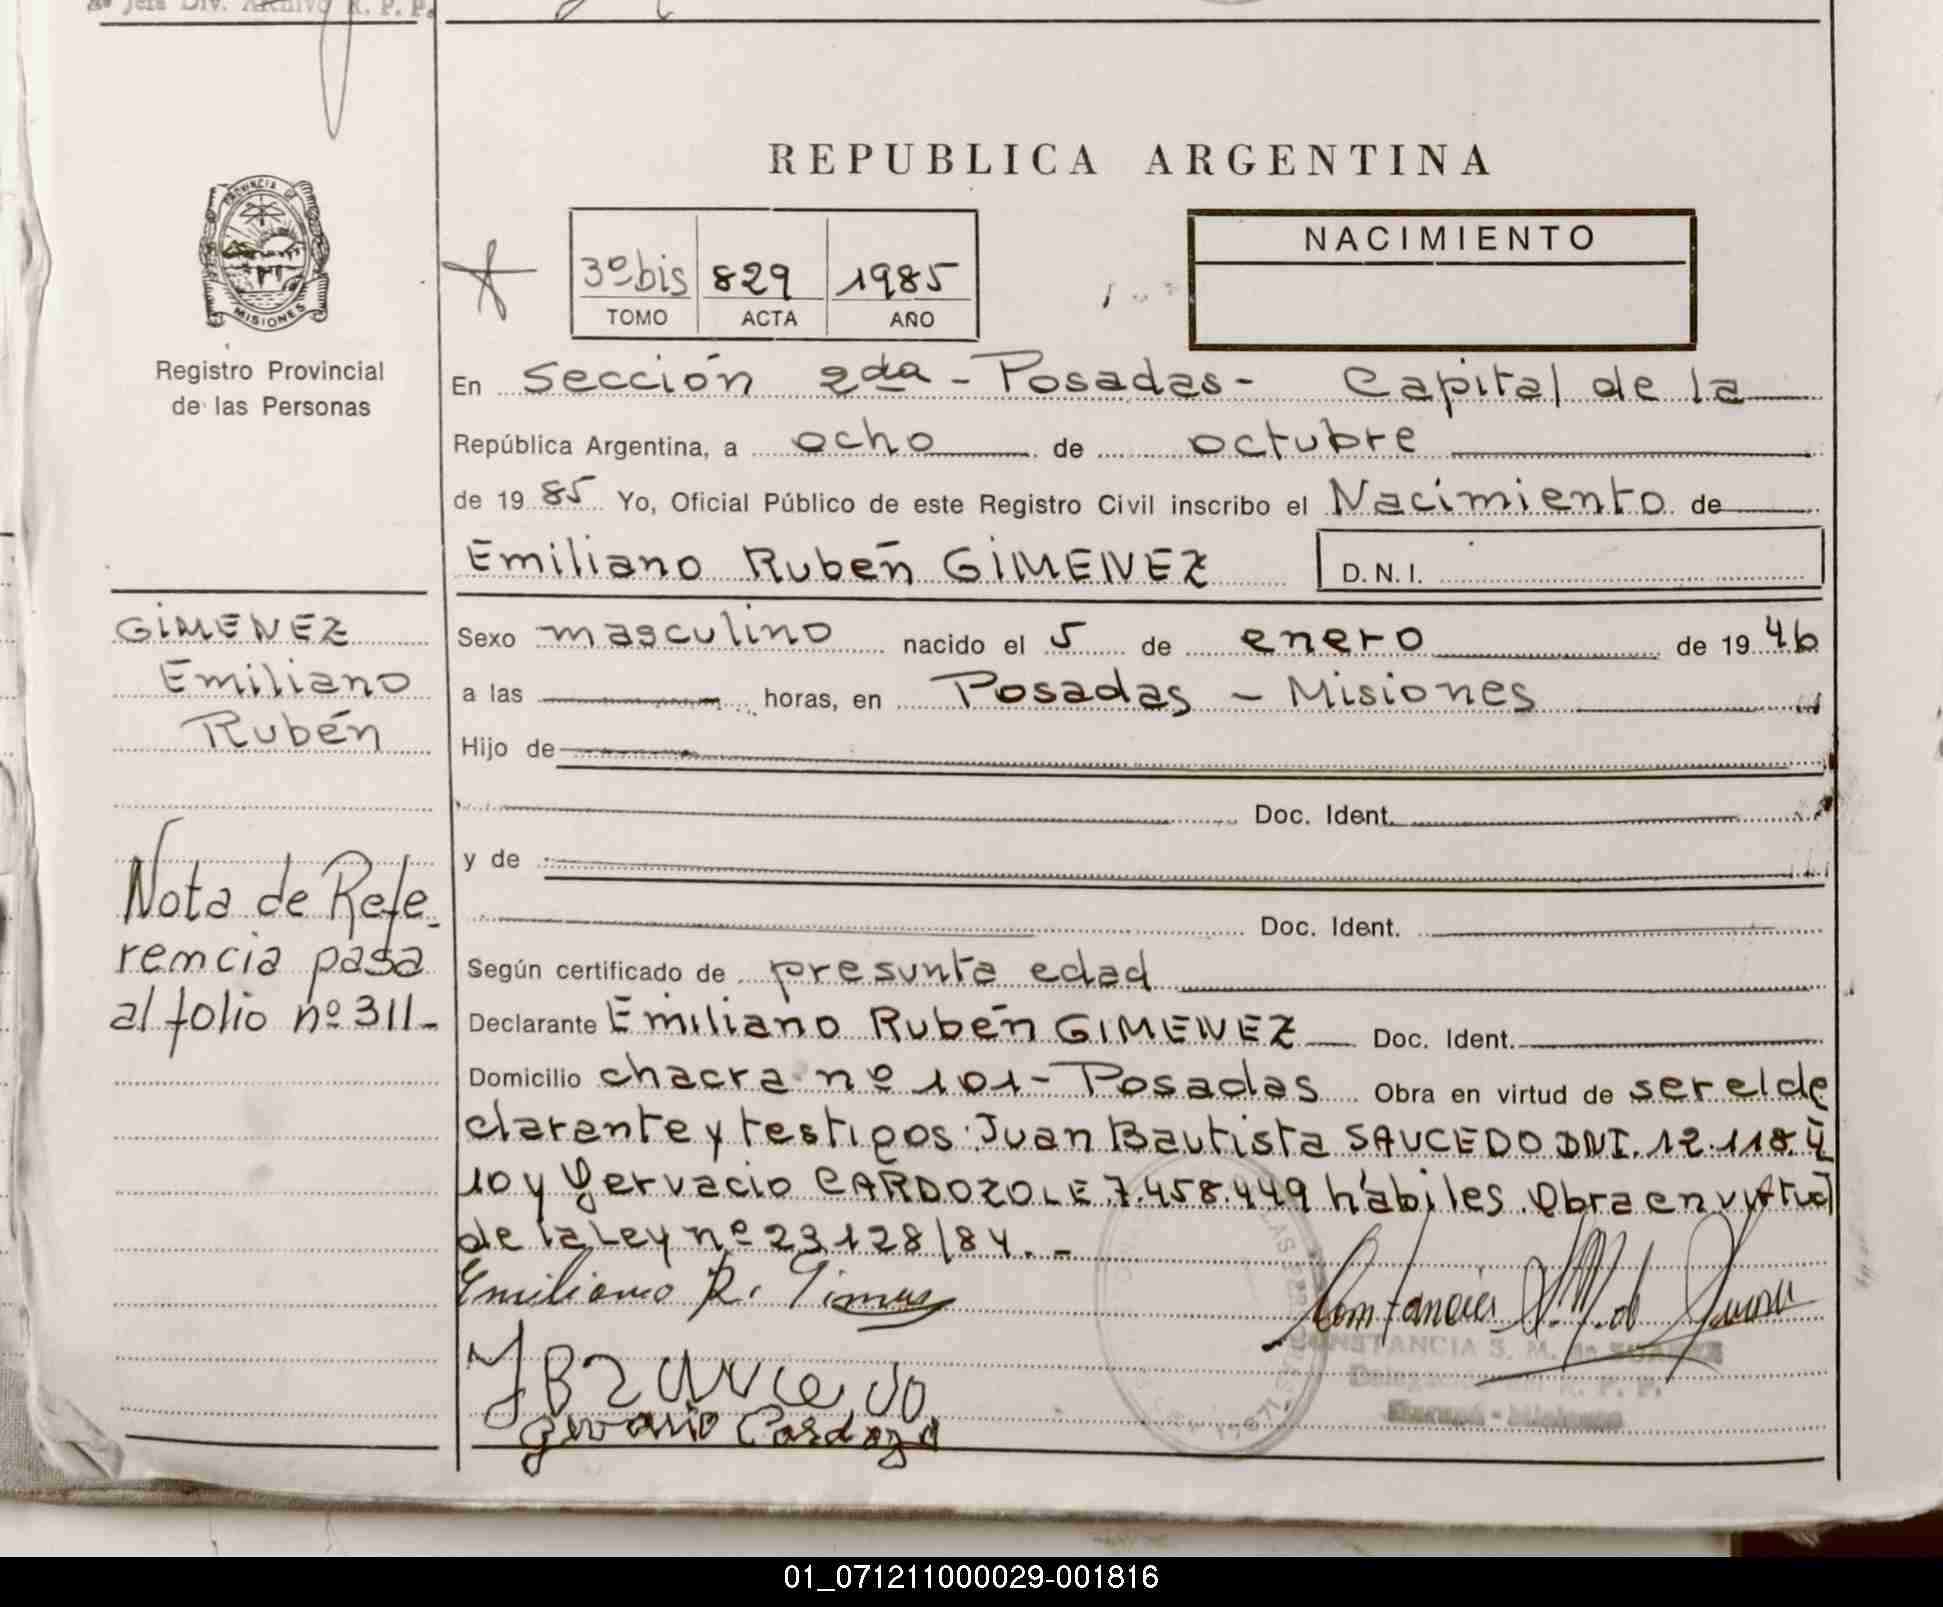 2º Jefa Div. Archivo R. P. P.
REPUBLICA ARGENTINA
PROVINCIA DE
MISIONES
Registro Provincial
de las Personas
3º bis 829 1985
TOMO ACTA AÑO
NACIMIENTO
En Sección 2da - Posadas - Capital de la
República Argentina, a ocho de octubre
de 1985 Yo, Oficial Público de este Registro Civil inscribo el Nacimiento de
Emiliano Rubén GIMENEZ D.N.I.
GIMENEZ
Emiliano
Rubén
Sexo masculino nacido el 5 de enero de 1946
a las horas, en Posadas - Misiones
Hijo de
Doc. Ident.
y de
Doc. Ident.
Nota de Refe-
rencia pasa
al folio nº 311-
Según certificado de presunta edad
Declarante Emiliano Rubén GIMENEZ Doc. Ident.
Domicilio chacra nº 101 - Posadas Obra en virtud de ser el de
clarante y testigos: Juan Bautista SAUCEDO DNI. 12.118.4
10 y Gervacio CARDOZO LE 7.458.449 hábiles. Obra en virtud
de la Ley nº 23128/84. -
Emiliano R. Gimenez
JB Saucedo
Gervacio Cardozo
Constancia S. M. de Suarez
CONSTANCIA S. M. de SUAREZ
R. P. P.
Misiones
01_071211000029-001816